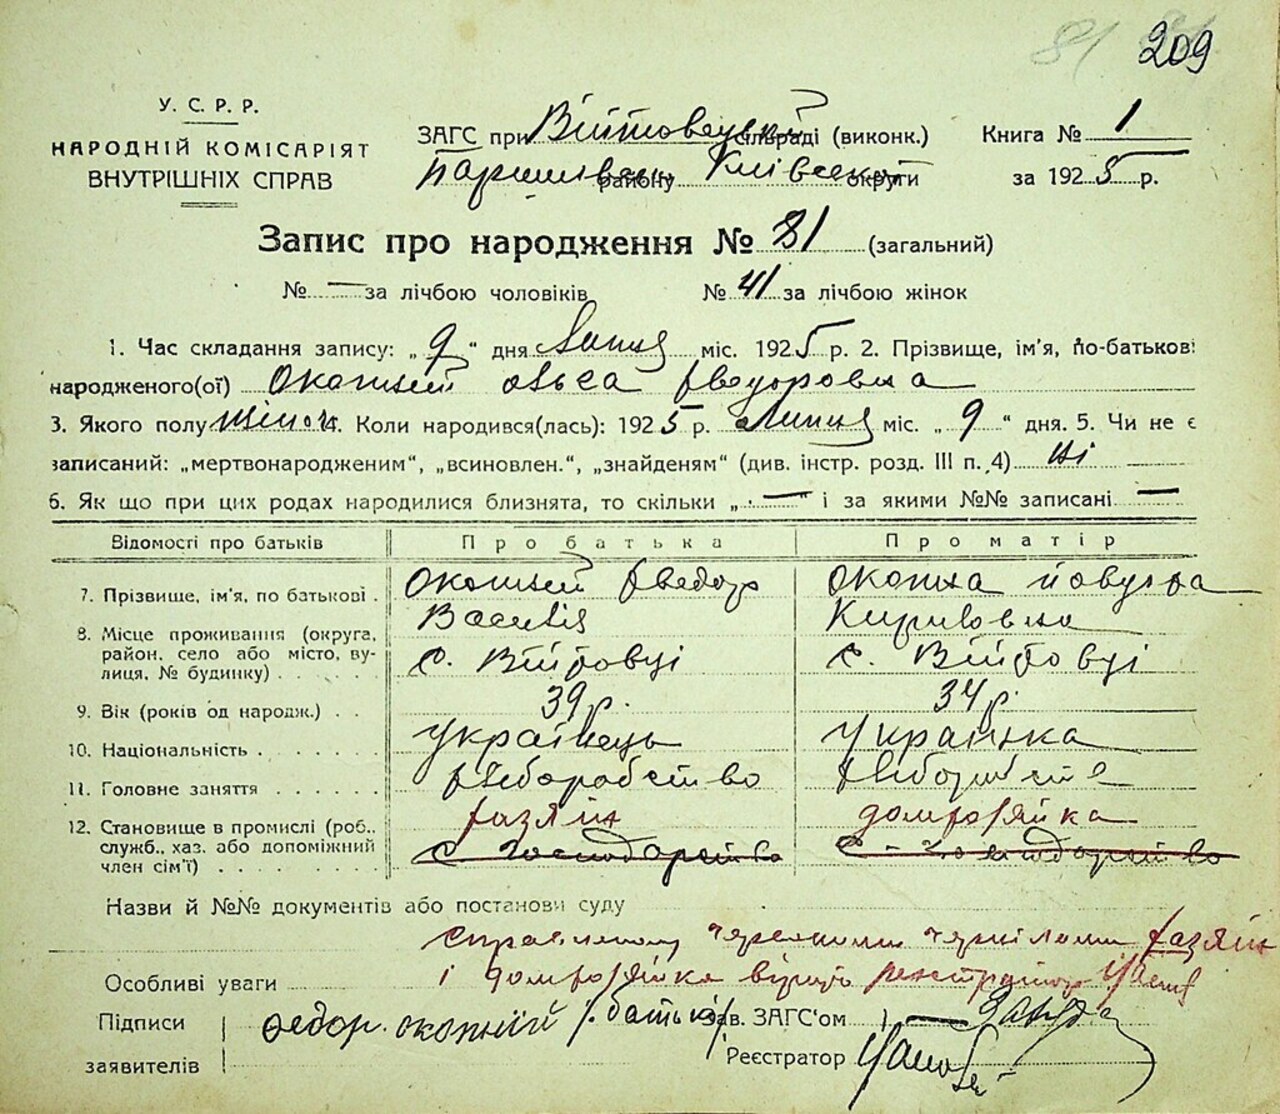 81 209
У. С. Р. Р.
НАРОДНІЙ КОМІСАРІЯТ
ВНУТРІШНІХ СПРАВ
ЗАГС при Війтовецькій сільраді (виконк.)
районУ Київської округи
Книга № 1
за 1925 р.
Запис про народження № 81 (загальний)
№ — за лічбою чоловіків № 41 за лічбою жінок
1. Час складання запису: „ 9 “ дня Липня міс. 1925 р. 2. Прізвище, ім’я, по-батькові
народженого(ої) Окопний Ольга Хведоровна
3. Якого полу жіноч. 4. Коли народився(лась): 1925 р. Липня міс. „ 9 “ дня. 5. Чи не є
записаний: „мертвонародженим“, „всиновлен.“, „знайденям“ (див. інстр. розд. III п. 4) ні
6. Як що при цих родах народилися близнята, то скільки „ — “ і за якими №№ записані —
Відомості про батьків Про батька Про матір
7. Прізвище, ім’я, по батькові . Окопний Хведор Окопна
Кириловна
8. Місце проживання (округа,
район, село або місто, ву-
лиця, № будинку) . . . . . с. Війтовці с. Війтовці
9. Вік (років од народж.) . . 39 р. 34 р.
10. Національність . . . . . українець українка
11. Головне заняття . . . . . хлеборобство
12. Становище в промислі (роб.,
служб., хаз. або допоміжний
член сім’ї) . . . . . . . . хазяїн домхазяйка
с. господарство с. господарство
Назви й №№ документів або постанови суду
червоними чернілами хазяїн
Особливі уваги і домхазяйка вірить реєстратор
Підписи
заявителів
Федор. окопній (батько)
Зав. ЗАГС’ом
Реєстратор